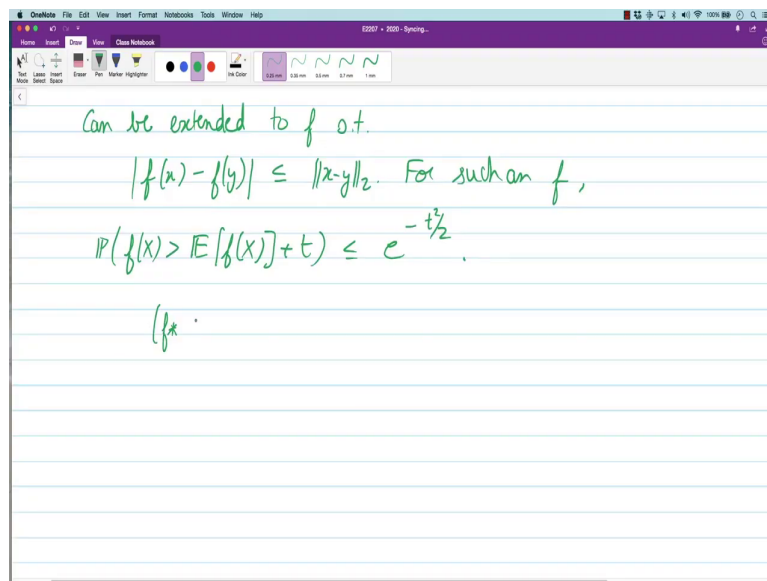 OneNote File Edit View Insert Format Notebooks Tools Window Help 100%
E2207 • 2020 - Syncing...
Home Insert Draw View Class Notebook
Text Mode Lasso Select Insert Space Eraser Pen Marker Highlighter Ink Color 0.25 mm 0.35 mm 0.5 mm 0.7 mm 1 mm
Can be extended to f s.t.
|f(x) - f(y)| ≤ ||x-y||₂. For such an f,
ℙ(f(X) > 𝔼[f(X)] + t) ≤ e^{-t²/2}.
(f*